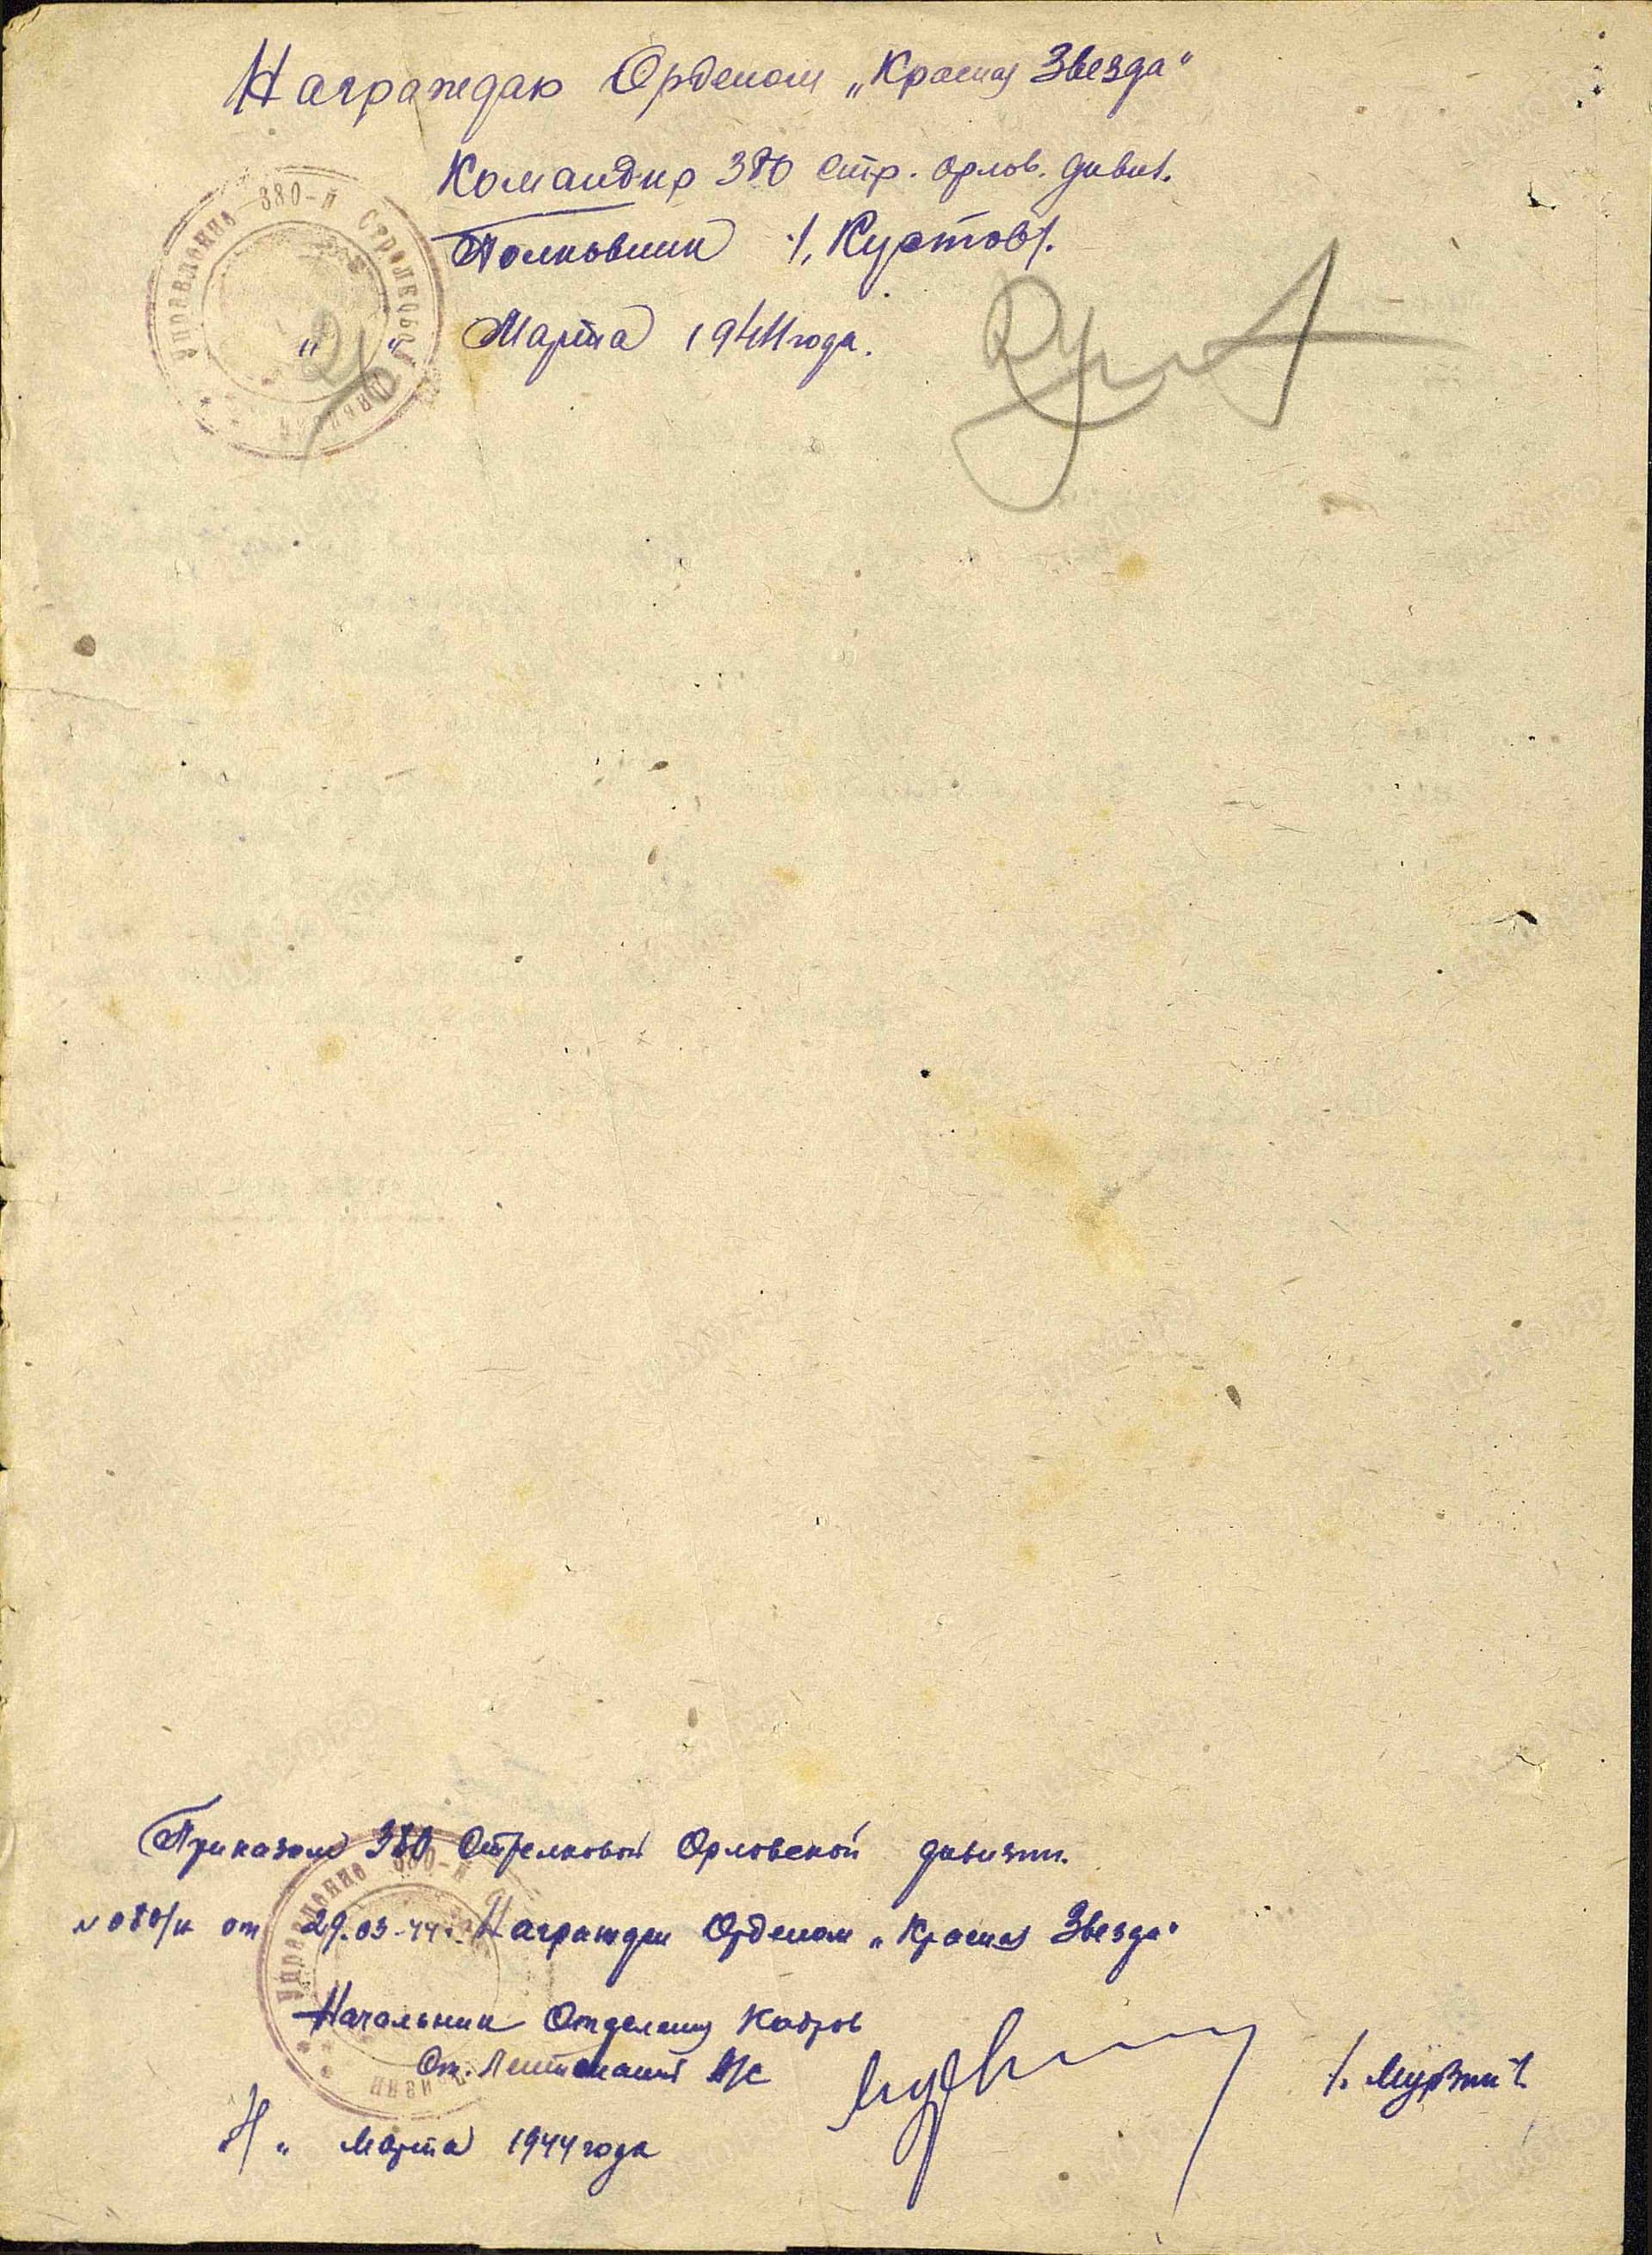 Награждаю Орденом „Красная Звезда“
Командир 380 стр. Орлов. дивиз.
Полковник /. Кустов /.
„ “ Марта 1944 года.
Управление 380-й Стрелковой Дивизии
Приказом 380 Стрелковой Орловской дивизии.
от 29.03.44г. Награжден Орденом „Красная Звезда“
Начальник Отделения Кадров
Ст. Лейтенант А/С
/. Мурзин /.
“ Марта 1944 года
Управление 380-й дивизии